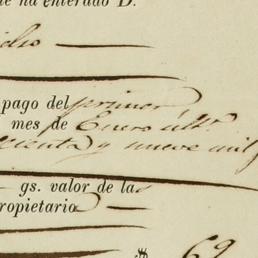 me ha enterado D.
pago del primer
mes de Enero últ.º
cienta y nueve mil
gs. valor de las
ropietario
$ 69